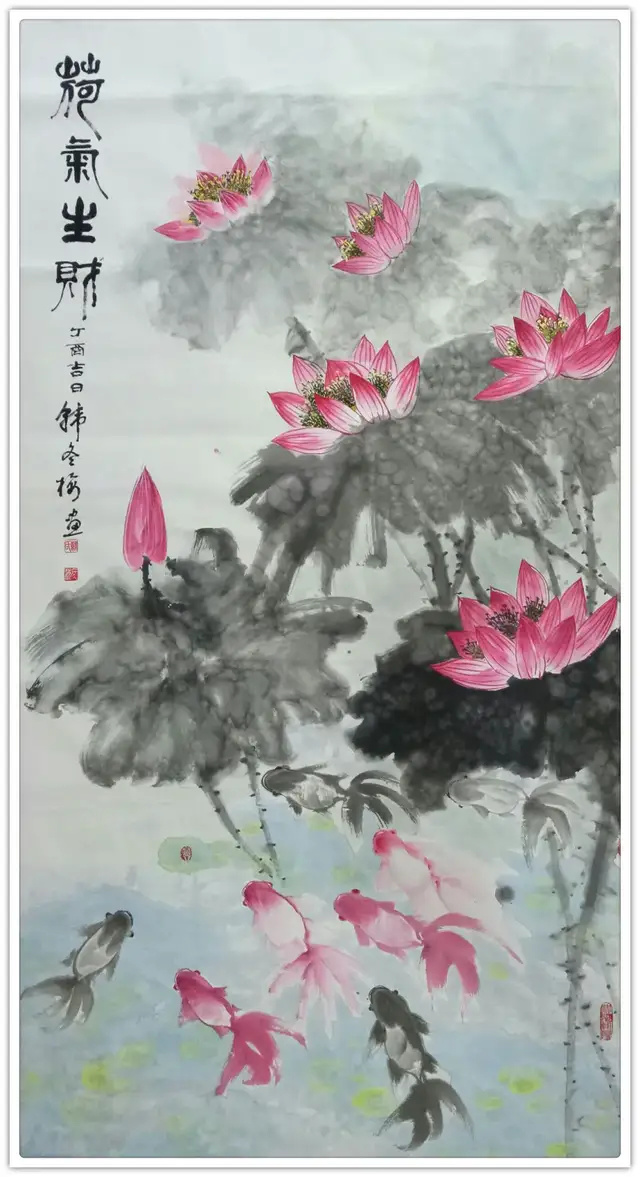 荷氣生財
丁酉吉日韩冬梅画